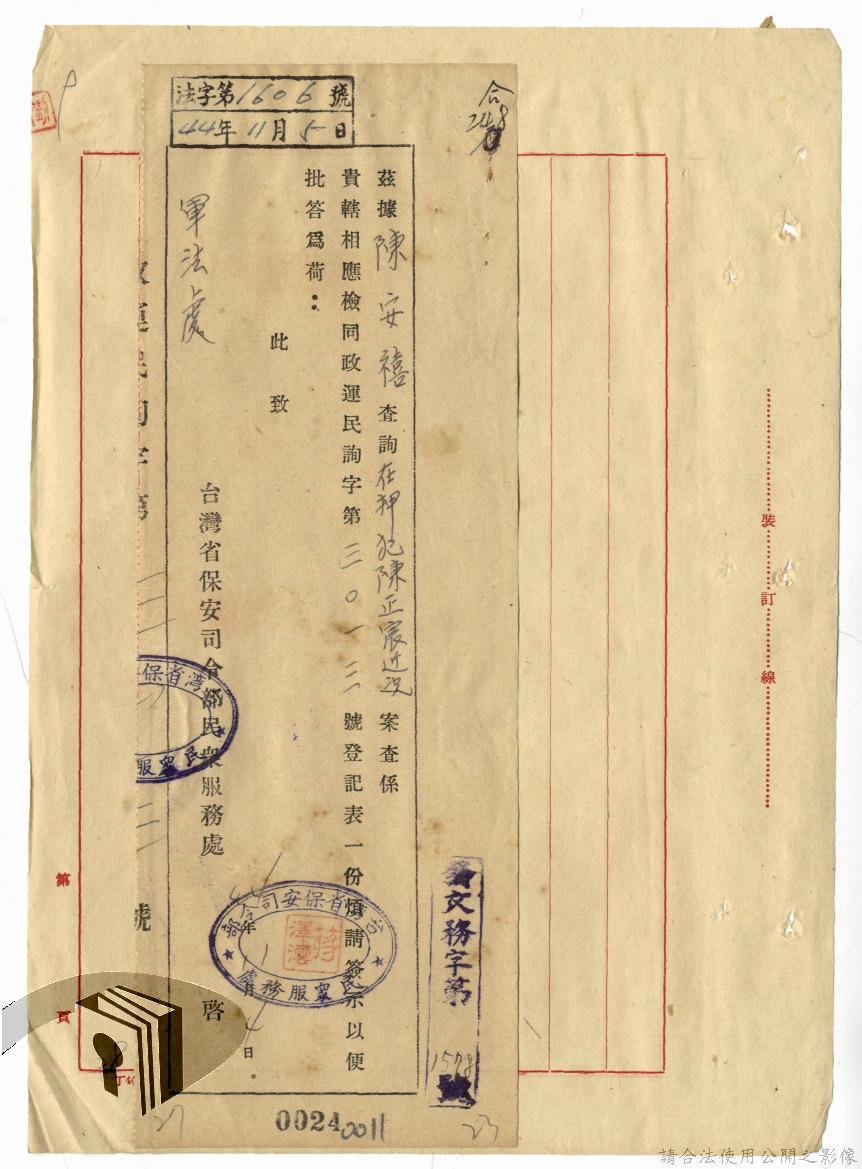 合
248
法字第1606號
44年11月5日
茲據陳安禧查詢在押犯陳正宸近況案查係
貴轄相應檢同政運民詢字第三〇一三號登記表一份煩請簽示以便
批答爲荷：
此致
軍法處
台灣省保安司令部民衆服務處
啓
44年11月4日
台灣省保安司令部
民衆服務處
蔣澤灃
發文務字第1578號
政運民詢字第
號
裝訂線
第
頁
27
0024
0011
23
請合法使用公開之影像